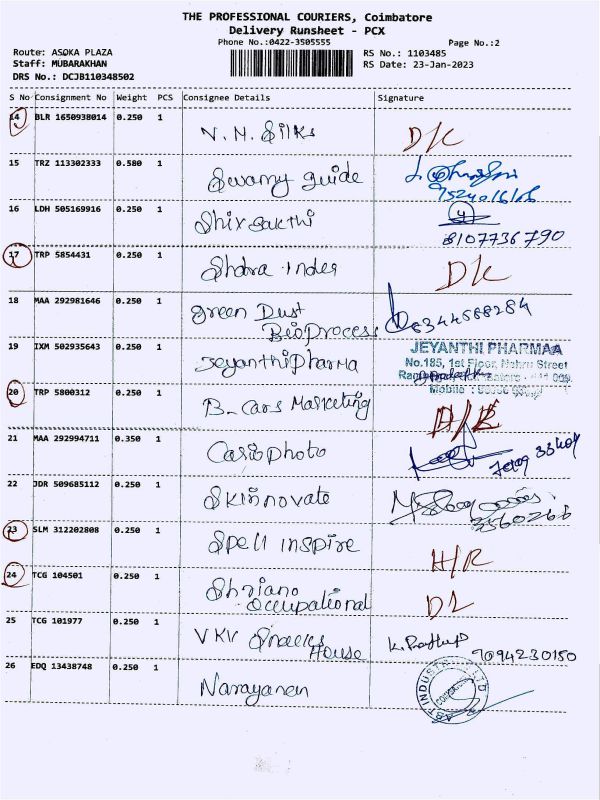 THE PROFESSIONAL COURIERS, Coimbatore
Delivery Runsheet - PCX
Phone No.:0422-3505555 Page No.:2
Route: ASOKA PLAZA RS No.: 1103485
Staff: MUBARAKHAN RS Date: 23-Jan-2023
DRS No.: DCJB110348502
S No Consignment No Weight PCS Consignee Details Signature
14 BLR 1650938014 0.250 1 V. M. Silks D/C
15 TRZ 113302333 0.580 1 Swamy guide
16 LDH 505169916 0.250 1 Shir sakthi
8107736790
17 TRP 5854431 0.250 1 D/C
18 MAA 292981646 0.250 1 green Dust
Bioprocess 6344588284
19 IXM 502935643 0.250 1 Jeyanthi pharma JEYANTHI PHARMAA
No.185, 1st Floor, Nehru Street
Mobile :
20 TRP 5800312 0.250 1 B_ Cars Marketing
21 MAA 292994711 0.350 1 Casio photo
22 JDR 509685112 0.250 1 Skinnovate
3560266
23 SLM 312202808 0.250 1 Spell inspire
H/R
24 TCG 104501 0.250 1
occupational DL
25 TCG 101977 0.250 1 VKV
House 9094230150
26 EDQ 13438748 0.250 1 Narayanan